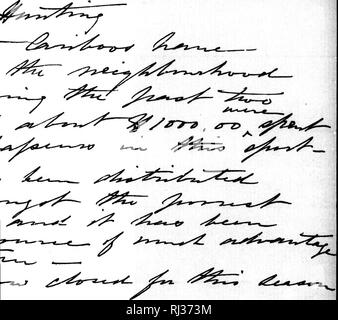 Hunting
- Cariboos have -
the neighbourhood
ring the past two
about $1000.00 were spent
apenses in this sport -
been distributed
ngst the poorest
and it has been
ource of much advantage
-
closed for this season
RJ373M